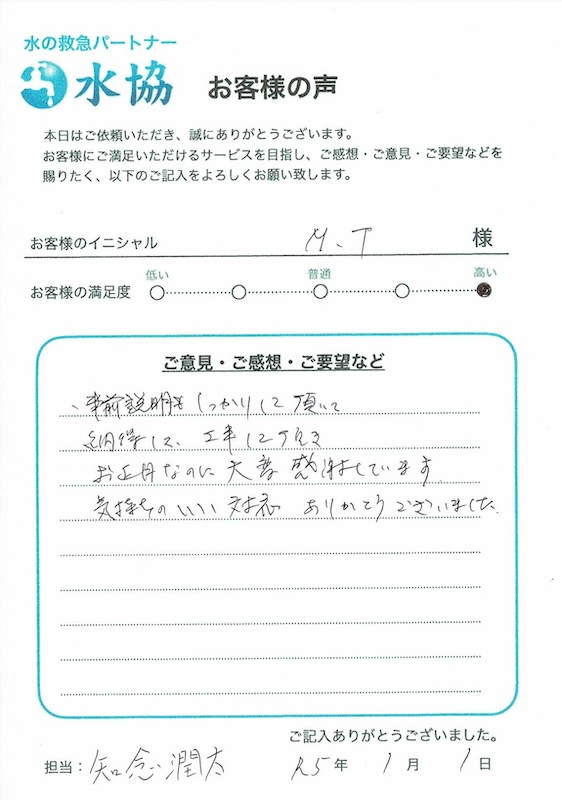 水の救急パートナー
水協 お客様の声
本日はご依頼いただき、誠にありがとうございます。
お客様にご満足いただけるサービスを目指し、ご感想・ご意見・ご要望などを
賜りたく、以下のご記入をよろしくお願い致します。
お客様のイニシャル M.T 様
低い 普通 高い
お客様の満足度
ご意見・ご感想・ご要望など
、事前説明をしっかりして頂いて
納得して、工事して頂き
お正月なのに大変感謝しています。
気持ちのいい対応 ありがとうございました。
ご記入ありがとうございました。
担当：知念潤太 R5年 1月 1日